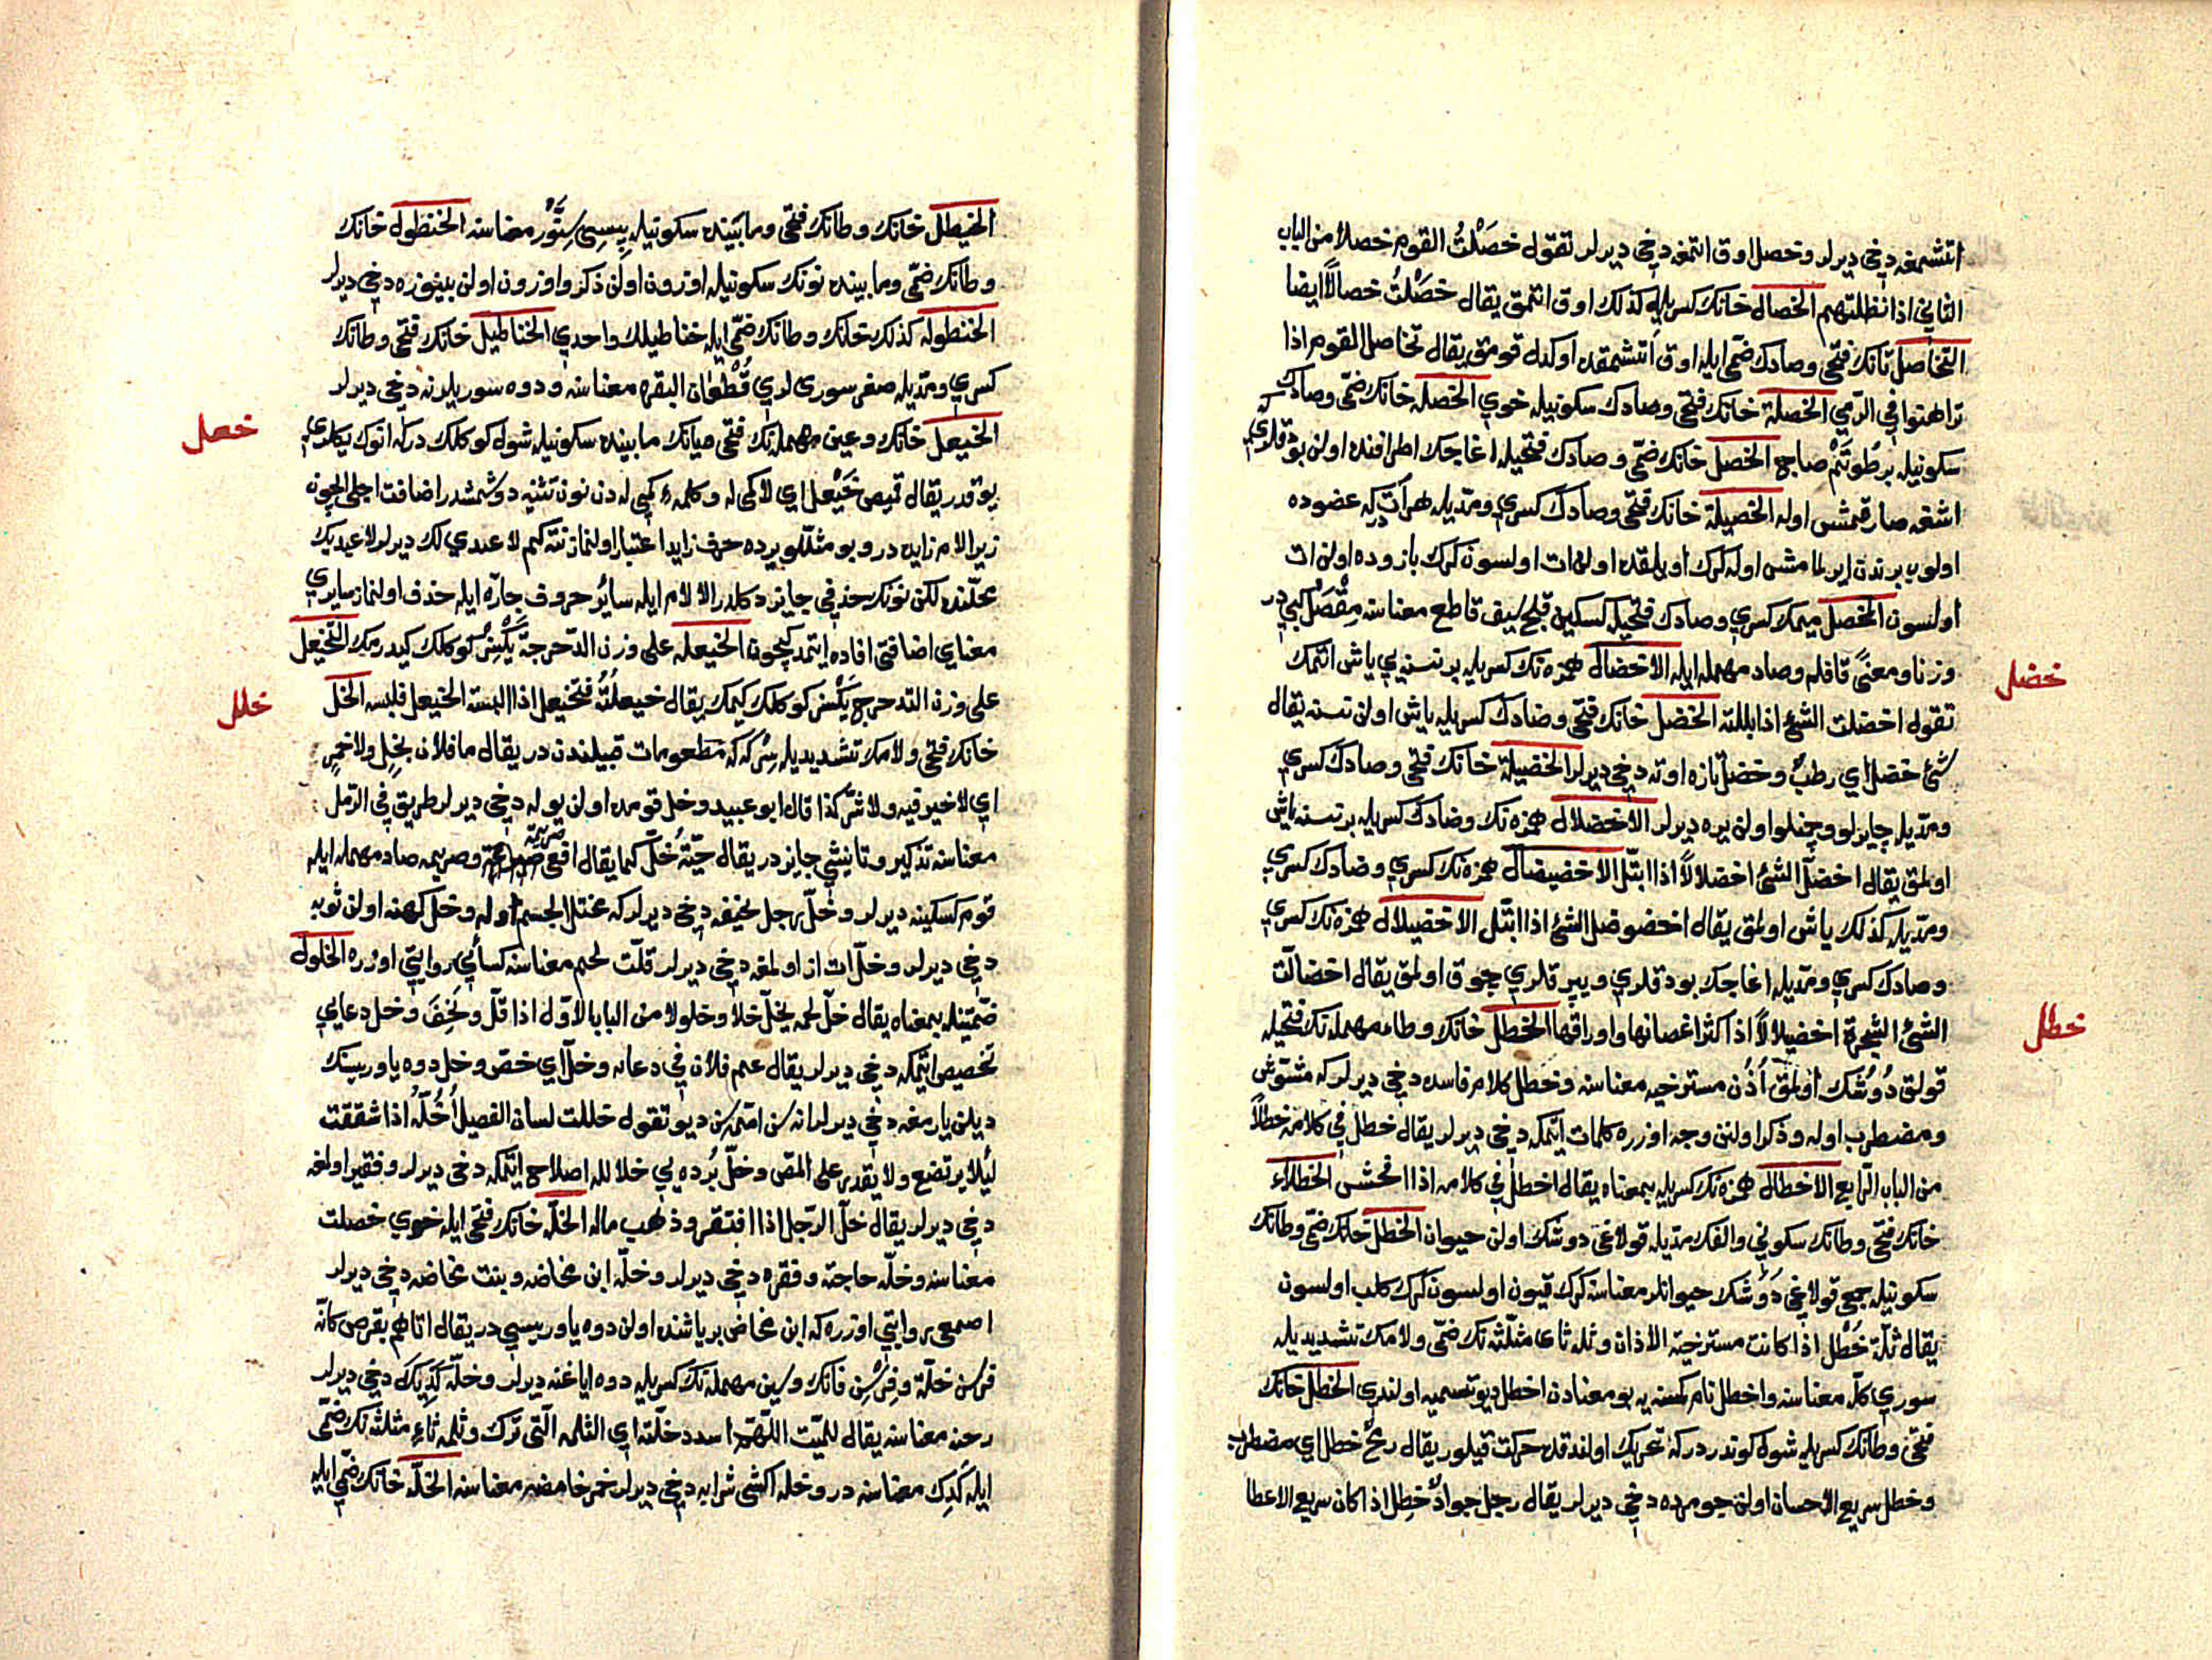 اتشمغه دخي ديرلر وخصل اوق اتمغه دخي ديرلر تقول خصَلْتُ القوم خصلا من الباب
الثاني اذا نظلتهم الخصال خانك كسريله كذلك اوق اتمق يقال خصَلْتُ خصالًا ايضا
التخاصل تانك فتحى وصادك ضمى ايله اوق اتشمقده اوكدل قومق يقال تخاصل القوم اذا
تراهنوا في الرمي الخصلة خانك فتحى وصادك سكونيله خوي الخصله خانك ضمى وصادك
سكونيله بر طوتم صاچ الخصل خانك ضمى وصادك فتحيله اغاجك اطرافنده اولن بودقلري كه
اشغه صارقمش اوله الخصيلة خانك فتحى وصادك كسري ومديله هر ات كه عضوده
اولوب برندن ايرلمامش اوله كرك اويلقده اولن ات اولسون كرك بازوده اولن ات
اولسون المخصل ميمك كسري وصادك فتحيله كسكين قلج سيف قاطع معناسنه مِقْصَل كبي در
وزنا ومعنًى قافله وصاد مهمله ايله الاخضال همزه نك كسريله بر نسنه يي ياش اتمك
خضل
تقول اخضلت الشئ اذا بللته الخضل خانك فتحى وضادك كسريله ياش اولن نسنه يقال
شئ خضل اي رطب وخضل تازه اوته دخي ديرلر الخضيلة خانك فتحى وضادك كسري
ومديله چايرلو وچمنلو اولن يره ديرلر الاخضلال همزه نك وضادك كسريله بر نسنه ياش
اولمق يقال اخضلّ الشئ اخضلالًا اذا ابتلّ الاخضيضال همزه نك كسري وضادك كسري
ومديله كذلك ياش اولمق يقال اخضوضل الشئ اذا ابتل الاخضيلال همزه نك كسري
وضادك كسري ومديله اغاجك بودقلري ويپرقلري چوق اولمق يقال اخضالّت
الشئ الشجرة اخضيلالًا اذا كثر اغصانها واوراقها الخطل خانك وطاء مهمله نك فتحيله
خطل
قولق دُوشك اولمق اُذُن مسترخيه معناسنه وخطل كلام فاسده دخي ديرلر كه مشوش
ومضطرب اوله وذكر اولنن وجه اوزره كلمات ايتمكه دخي ديرلر يقال خطل في كلامه خطلًا
من الباب الرابع الاخطال همزه نك كسريله بمعناه يقال اخطل في كلامه اذا افحش الخطلاء
خانك فتحى وطانك سكوني والفك مديله قولاغى دوشك اولن حيوان الخطل خانك ضمى وطانك
سكونيله جمعى قولاغى دَوشك حيوانلر معناسنه كرك قيون اولسون كرك كلب اولسون
يقال ثلّة خُطْل اذا كانت مسترخية الاذان وثله ثاى مثلثه نك ضمى ولامك تشديديله
سوري كله معناسنه واخطل نام كمسنه يه بو معنادن اخطل ديو تسميه اولندي الخطل خانك
فتحى وطانك كسريله شول كوندردر كه تحريك اولندقده حركت قيلور يقال رمحٌ خطل اي مضطرب
وخطل سريع الاحسان اولن جومرده دخي ديرلر يقال رجل جوادٌ خطِل اذا كان سريع الاعطا
الخيطل خانك وطانك فتحى ومابينده سكونيله پسي سِنَّوْر معناسنه الخنطول خانك
وطانك ضمى ومابينده نونك سكونيله اوزون اولن ذكر واوزون اولن بينوزه دخي ديرلر
الخنطوله كذلك خانك وطانك ضمى ايله خناطيلك واحدي الخناطيل خانك فتحى وطانك
كسري ومديله صغر سوري لري قُطْعان البقره معناسنه ودوه سوريلرنه دخي ديرلر
الخيعل خانك وعين مهمله نك فتحى ويانك مابينده سكونيله شول كوكلك در كه انوك يكلري
خعل
يوقدر يقال قميص خَيْعل اي لا كمى له وكلمهٔ كمى له دن نون تثنيه دوشمشدر اضافت اجلى ايچون
زيرا لام زايده در وبو مثللو يرده حرف زايد اعتبار اولنماز نته كيم لا عبدي لك ديرلر لا عبديك
محلنده لكن نونك حذفي جايز دكلدر الا لام ايله ساير حروف جارّه ايله حذف اولنماز سايري
معناي اضافتى افاده ايتمدكيچون الخيعله على وزن الدحرجة يكسز كوكلك كيدرمك التخيعل
على وزن التدحرج يكسز كوكلك كيمك يقال خيعلتُهُ فتخيعل اذا البسته الخيعل فلبسه الخل
خلل
خانك فتحى ولامك تشديديله سركه كه مطعومات قبيلندن در يقال ما فلان بخلِ ولا خمرِ
اي لا خير فيه ولا شر كذا قال ابو عبيد وخل قومده اولن يوله دخي ديرلر طريق في الرمل
معناسنه تذكير وتانيثي جايزدر يقال حيّةُ خلّ كما يقال افعى صريمة وصريمه صاد مهمله ايله
قوم كسكينه ديرلر وخلّ رجل نحيفه دخي ديرلر كه مختل الجسم اوله وخل كهنه اولن ثوبه
دخي ديرلر وخلّ ات از اولمغه دخي ديرلر قلّت لحم معناسنه كسائي روايتي اوزره الخلول
ضمتينله بمعناه يقال خلّ لحمه يخلّ خلا وخلولا من الباب الاول اذا قلّ ونَحِفَ وخل دعايي
تخصيص ايتمكه دخي ديرلر يقال عم فلان في دعائه وخلّ اي خص وخل دوه ياوريسينك
ديلن يارمغه دخي ديرلر اناسن اممسن ديو تقول خللت لسان الفصيل اخُلّهُ اذا شققت
لئلا يرتضع ولا يقدر على المص وخلّ بُرده يي خلالله اصلاح ايتمكه دخي ديرلر وفقير اولمغه
دخي ديرلر يقال خلّ الرجل اذا افتقر وذهب ماله الخله خانك فتحى ايله خوي خصلت
معناسنه وخله حاجته وفقره دخي ديرلر وخله ابن مخاضه وبنت مخاضه دخي ديرلر
اصمعى روايتي اوزره كه ابن مخاض بر ياشنده اولن دوه ياوريسي در يقال اتاهم بقرص كانه
فرسن خلّة وفِرْسِن فانك وسين مهمله نك كسريله دوه اياغنه ديرلر وخله كَدِيك دخي ديرلر
رخنه معناسنه يقال للميت اللهم اسدد خلته اي الثلمه التى ترك وثلمه ثاءِ مثلثه نك ضمى
ايله كَدِك معناسنه در وخله اكشى شرابه دخي ديرلر خمر خامضه معناسنه الخله خانك ضمى ايله